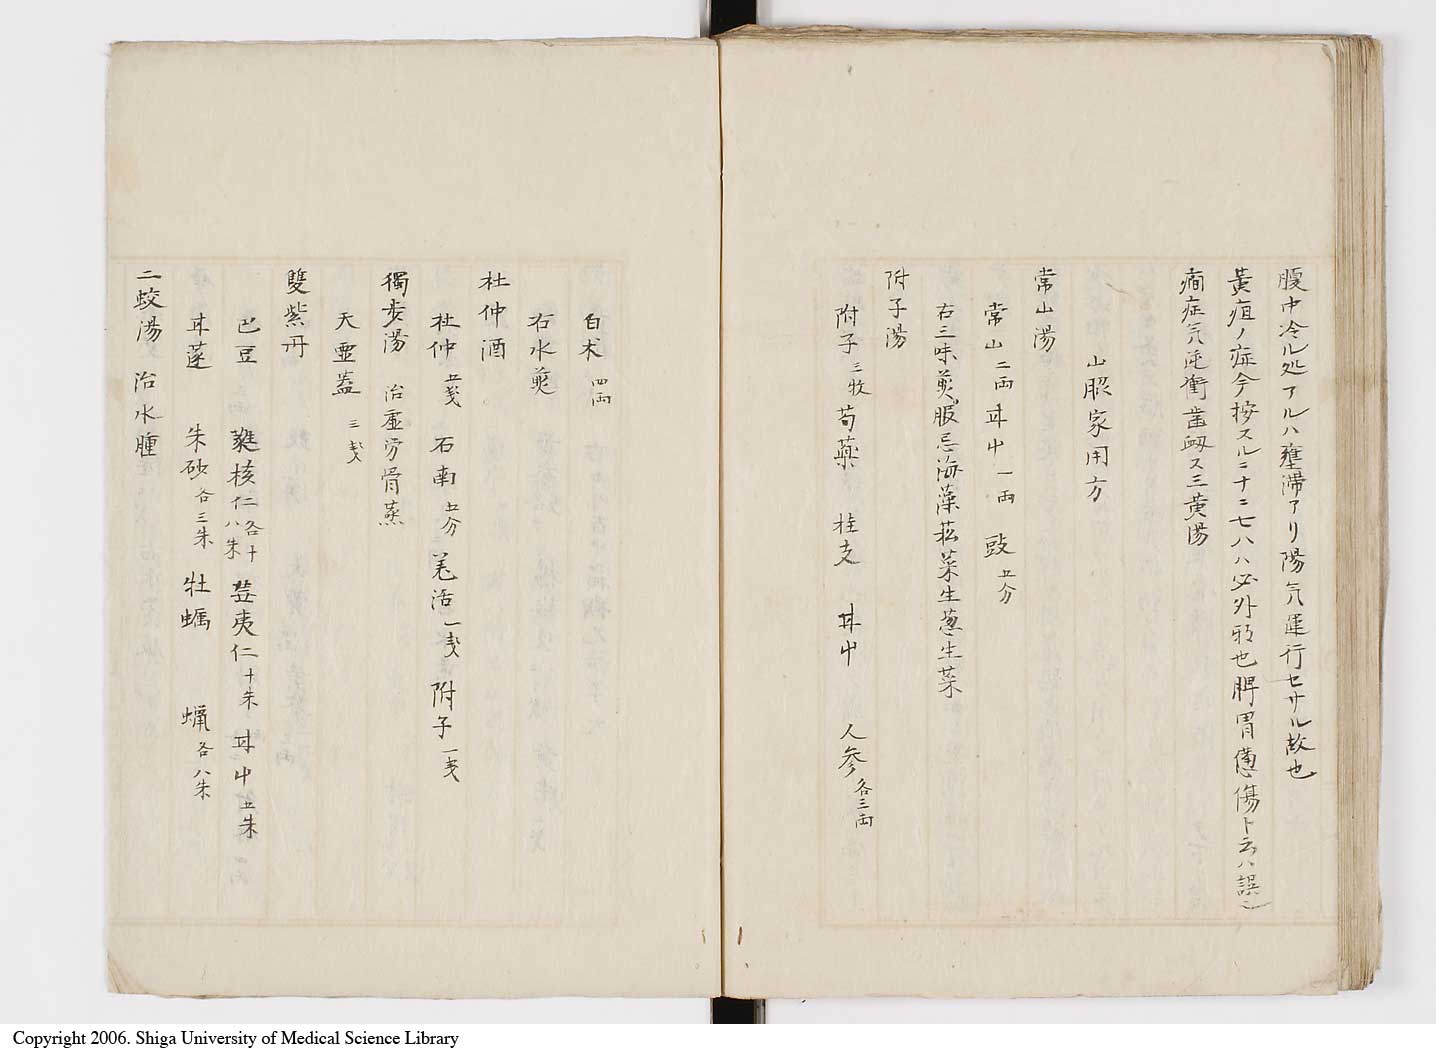 腹中冷ル処アルハ壅滞アリ陽気運行セサル故也
黄疸ノ症今按スルニ十ニ七八ハ必外邪也脾胃傷ト云ハ誤
癇症気逆衝歯衂ス三黄湯
山脇家用方
常山湯
常山二両 甘中一両 豉五分
右三味煎服忌海藻菘菜生葱生菜
附子湯
附子三枚 芍薬 桂支 甘中 人参各三両
白朮四両
右水煎
杜仲酒
杜仲五戔 石南五分 羌活一戔 附子一戔
獨歩湯 治虚労骨蒸
天霊蓋三戔
雙紫丹
巴豆 蕤核仁各十八朱 芫夷仁十朱 甘中五朱
甘遂 朱砂各三朱 牡蠣 蝋各八朱
二蛟湯 治水腫
Copyright 2006. Shiga University of Medical Science Library